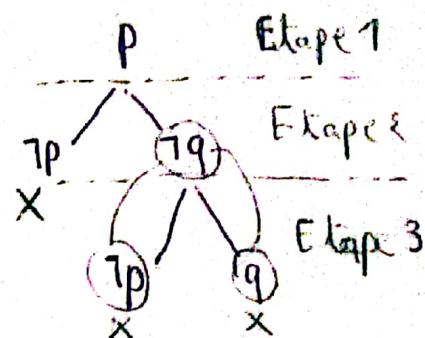 p Etape 1
¬p ¬q Etape 2
X
¬p q Etape 3
X X